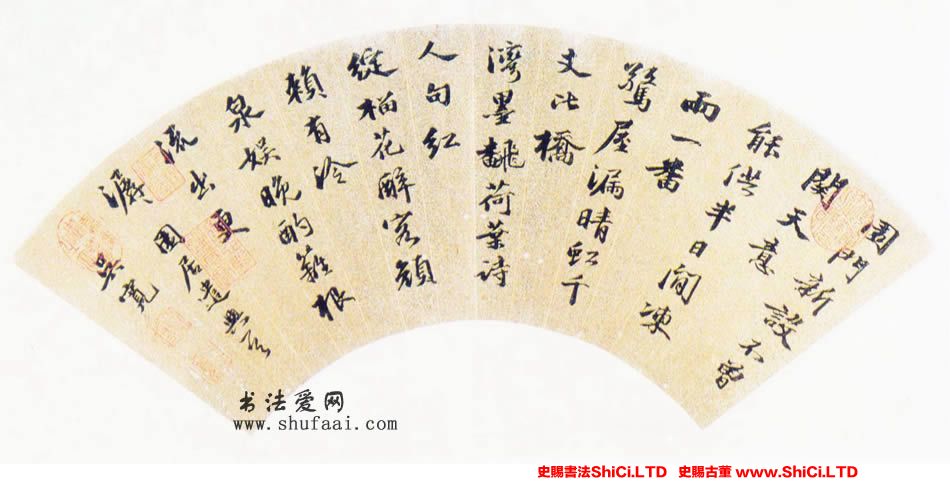 園門新設不曾
關天意
能供半日閒凍
雨一番
驚屋漏晴虹千
丈比橋
灣墨翻荷葉詩
人句紅
綻榴花醉客顏
賴有冷
泉娛晚酌籬根
流出更
潺 園居遣興
吳寬
书法爱网
www.shufaai.com
史賜書法ShiCi.LTD 史賜古董 www.ShiCi.LTD